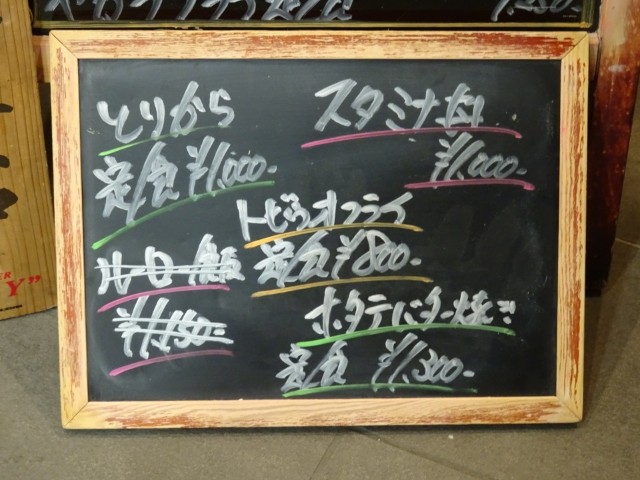 とりから
定食 ¥1,000-
スタミナ丼
¥1,000-
トビウオフライ
定食 ¥800-
ルーロー飯
¥1,150-
ホタテバター焼き
定食 ¥1,300-
Y"